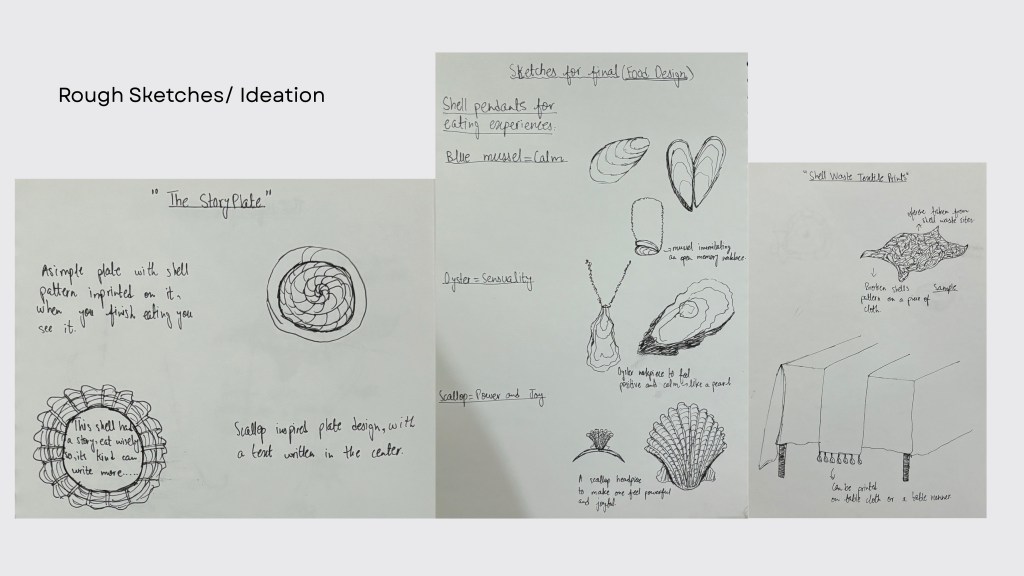 Rough Sketches/ Ideation
"The StoryPlate"
A simple plate with shell
pattern imprinted on it,
when you finish eating you
see it.
This shell has
a story, eat wisely
so, its kind can
write more.....
Scallop inspired plate design, with
a text written in the center.
Sketches for final (Food Design)
Shell pendants for
eating experiences.
Blue mussel = Calm
mussel
as open memory necklace
Oyster = Sensuality
Oyster neckpiece to feel
positive and calm like a pearl
Scallop = Power and Joy
A scallop headpiece
to make one feel powerful
and joyful
"Shell Waste Textile Prints"
taken from
shell waste sites
Broken shells
pattern on a piece of
cloth.
Sample
Can be printed
on table cloth or a table runner